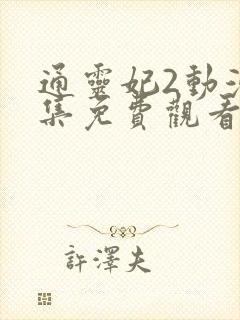 通靈妃2動
集免費觀看
許澤夫